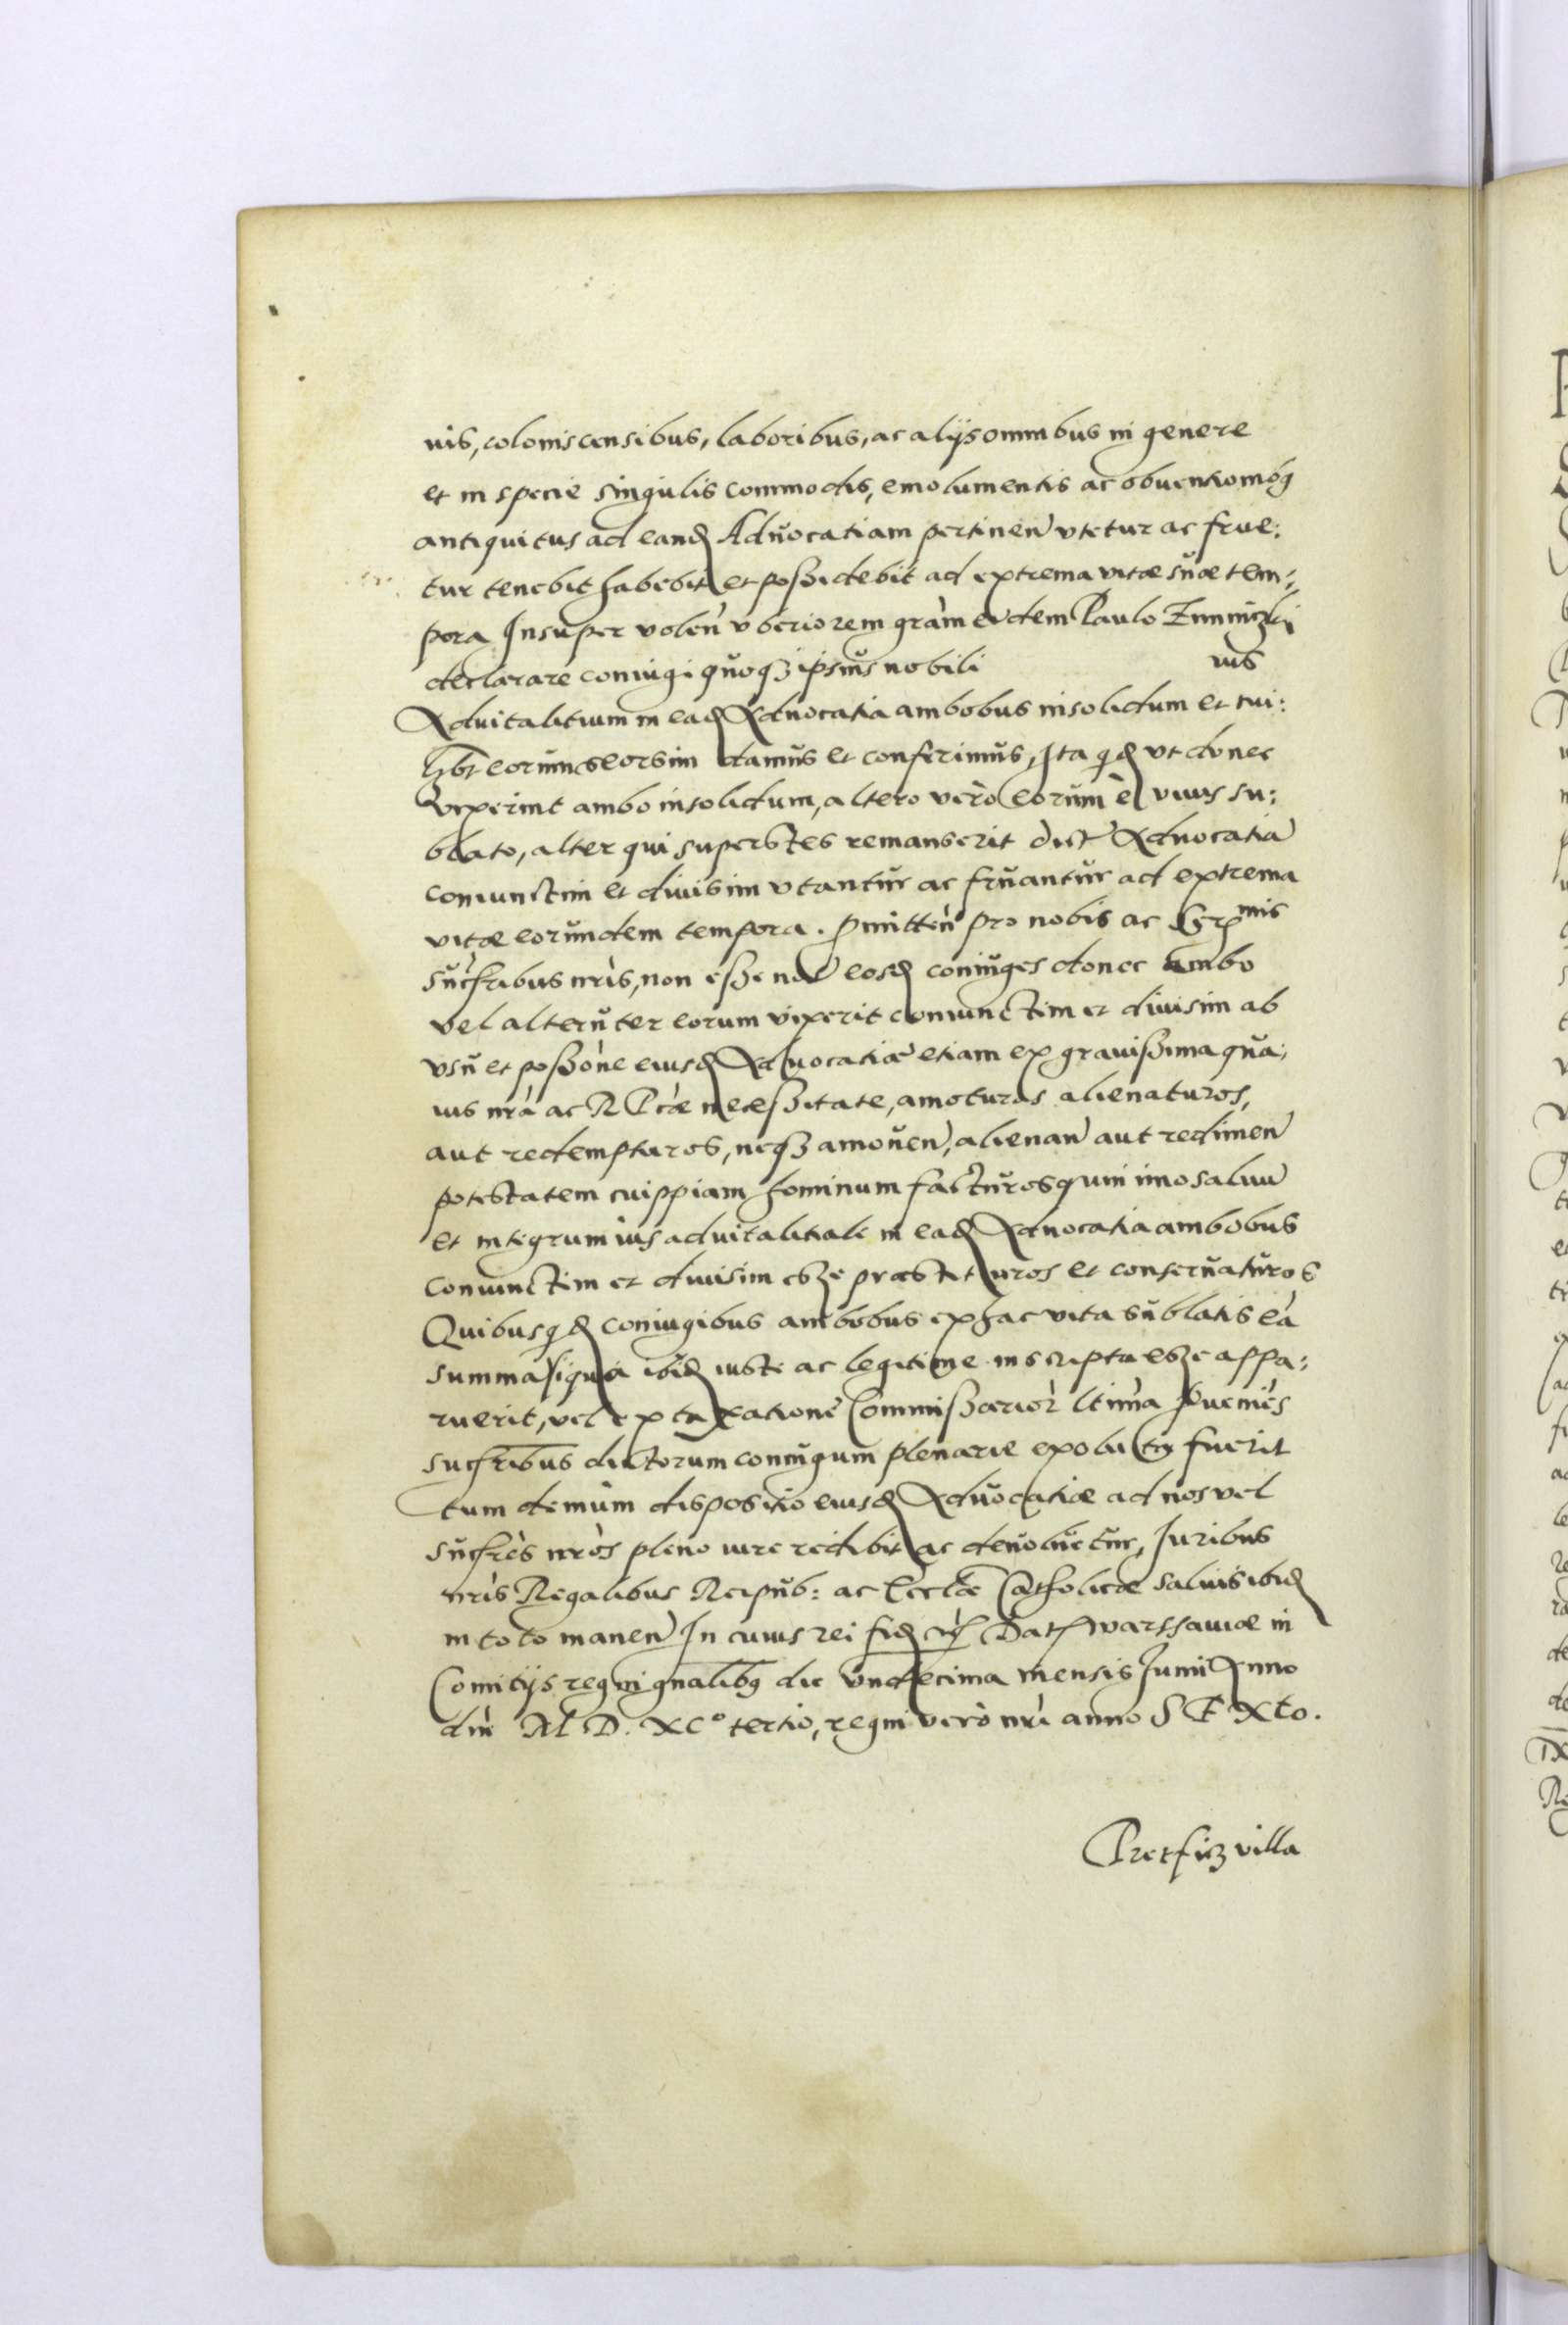 nis, colonis censibus, laboribus, ac alijs omnibus in genere
et in specie singulis commodis, emolumentis ac obuentionibq
antiquitus ad eand Aduocatiam pertinen vtetur ac frue:
tur tenebit habebit et possidebit ad extrema vitæ suæ tem:
pora Insuper volen vberiorem gram eidem Paulo
declarare coniugi quoq ipsius nobili ius
Aduitalitium in ead Aduocatia ambobus insolidum et cui:
libet eorum seorsim damus et conferimus, Ita qd vt donec
vixerint ambo insolidum, altero vero eorum è viuis su:
blato, alter qui superstes remanserit dict Aduocatia
coniunctim et diuisim vtantur ac fruantur ad extrema
vitæ eorundem tempora. Pmitten pro nobis ac Sermis
sucsribus nris, non esse nos eosd coniuges donec ambo
vel alteruter eorum vixerit coniunctim et diuisim ab
vsu et possone eiusd Aduocatiæ etiam ex grauissima qua:
uis nra ac R Pcæ necessitate, amoturos alienaturos,
aut redempturos, neq amouen, alienan aut redimen
potestatem cuippiam hominum facturos quin imo saluu
et integrum ius aduitalitiale in ead Aduocatia ambobus
coniunctim et diuisim esse præstituros et conseruaturos
Quibus qd coniugibus ambobus ex hac vita sublatis ea
summa siqua ibid iuste ac legitime inscripta esse appa:
ruerit, vel ex taxatione Commissarior ltima puenies
sucsribus dictorum coniugum plenarie exoluta fuerit
tum demum dispositio eiusd Aduocatiæ ad nos vel
sucsres nros pleno iure redibit ac deuoluetur, Iuribus
nris Regalibus Reipub: ac Ecclæ Catholicæ saluis ibid
in toto manen In cuius rei fid Dat Warssauiæ in
Comitijs regni gnalibq die vndecima mensis Iunij Anno
dni M D. XCº tertio, regni vero nri anno SEXto.
Pretficz villa